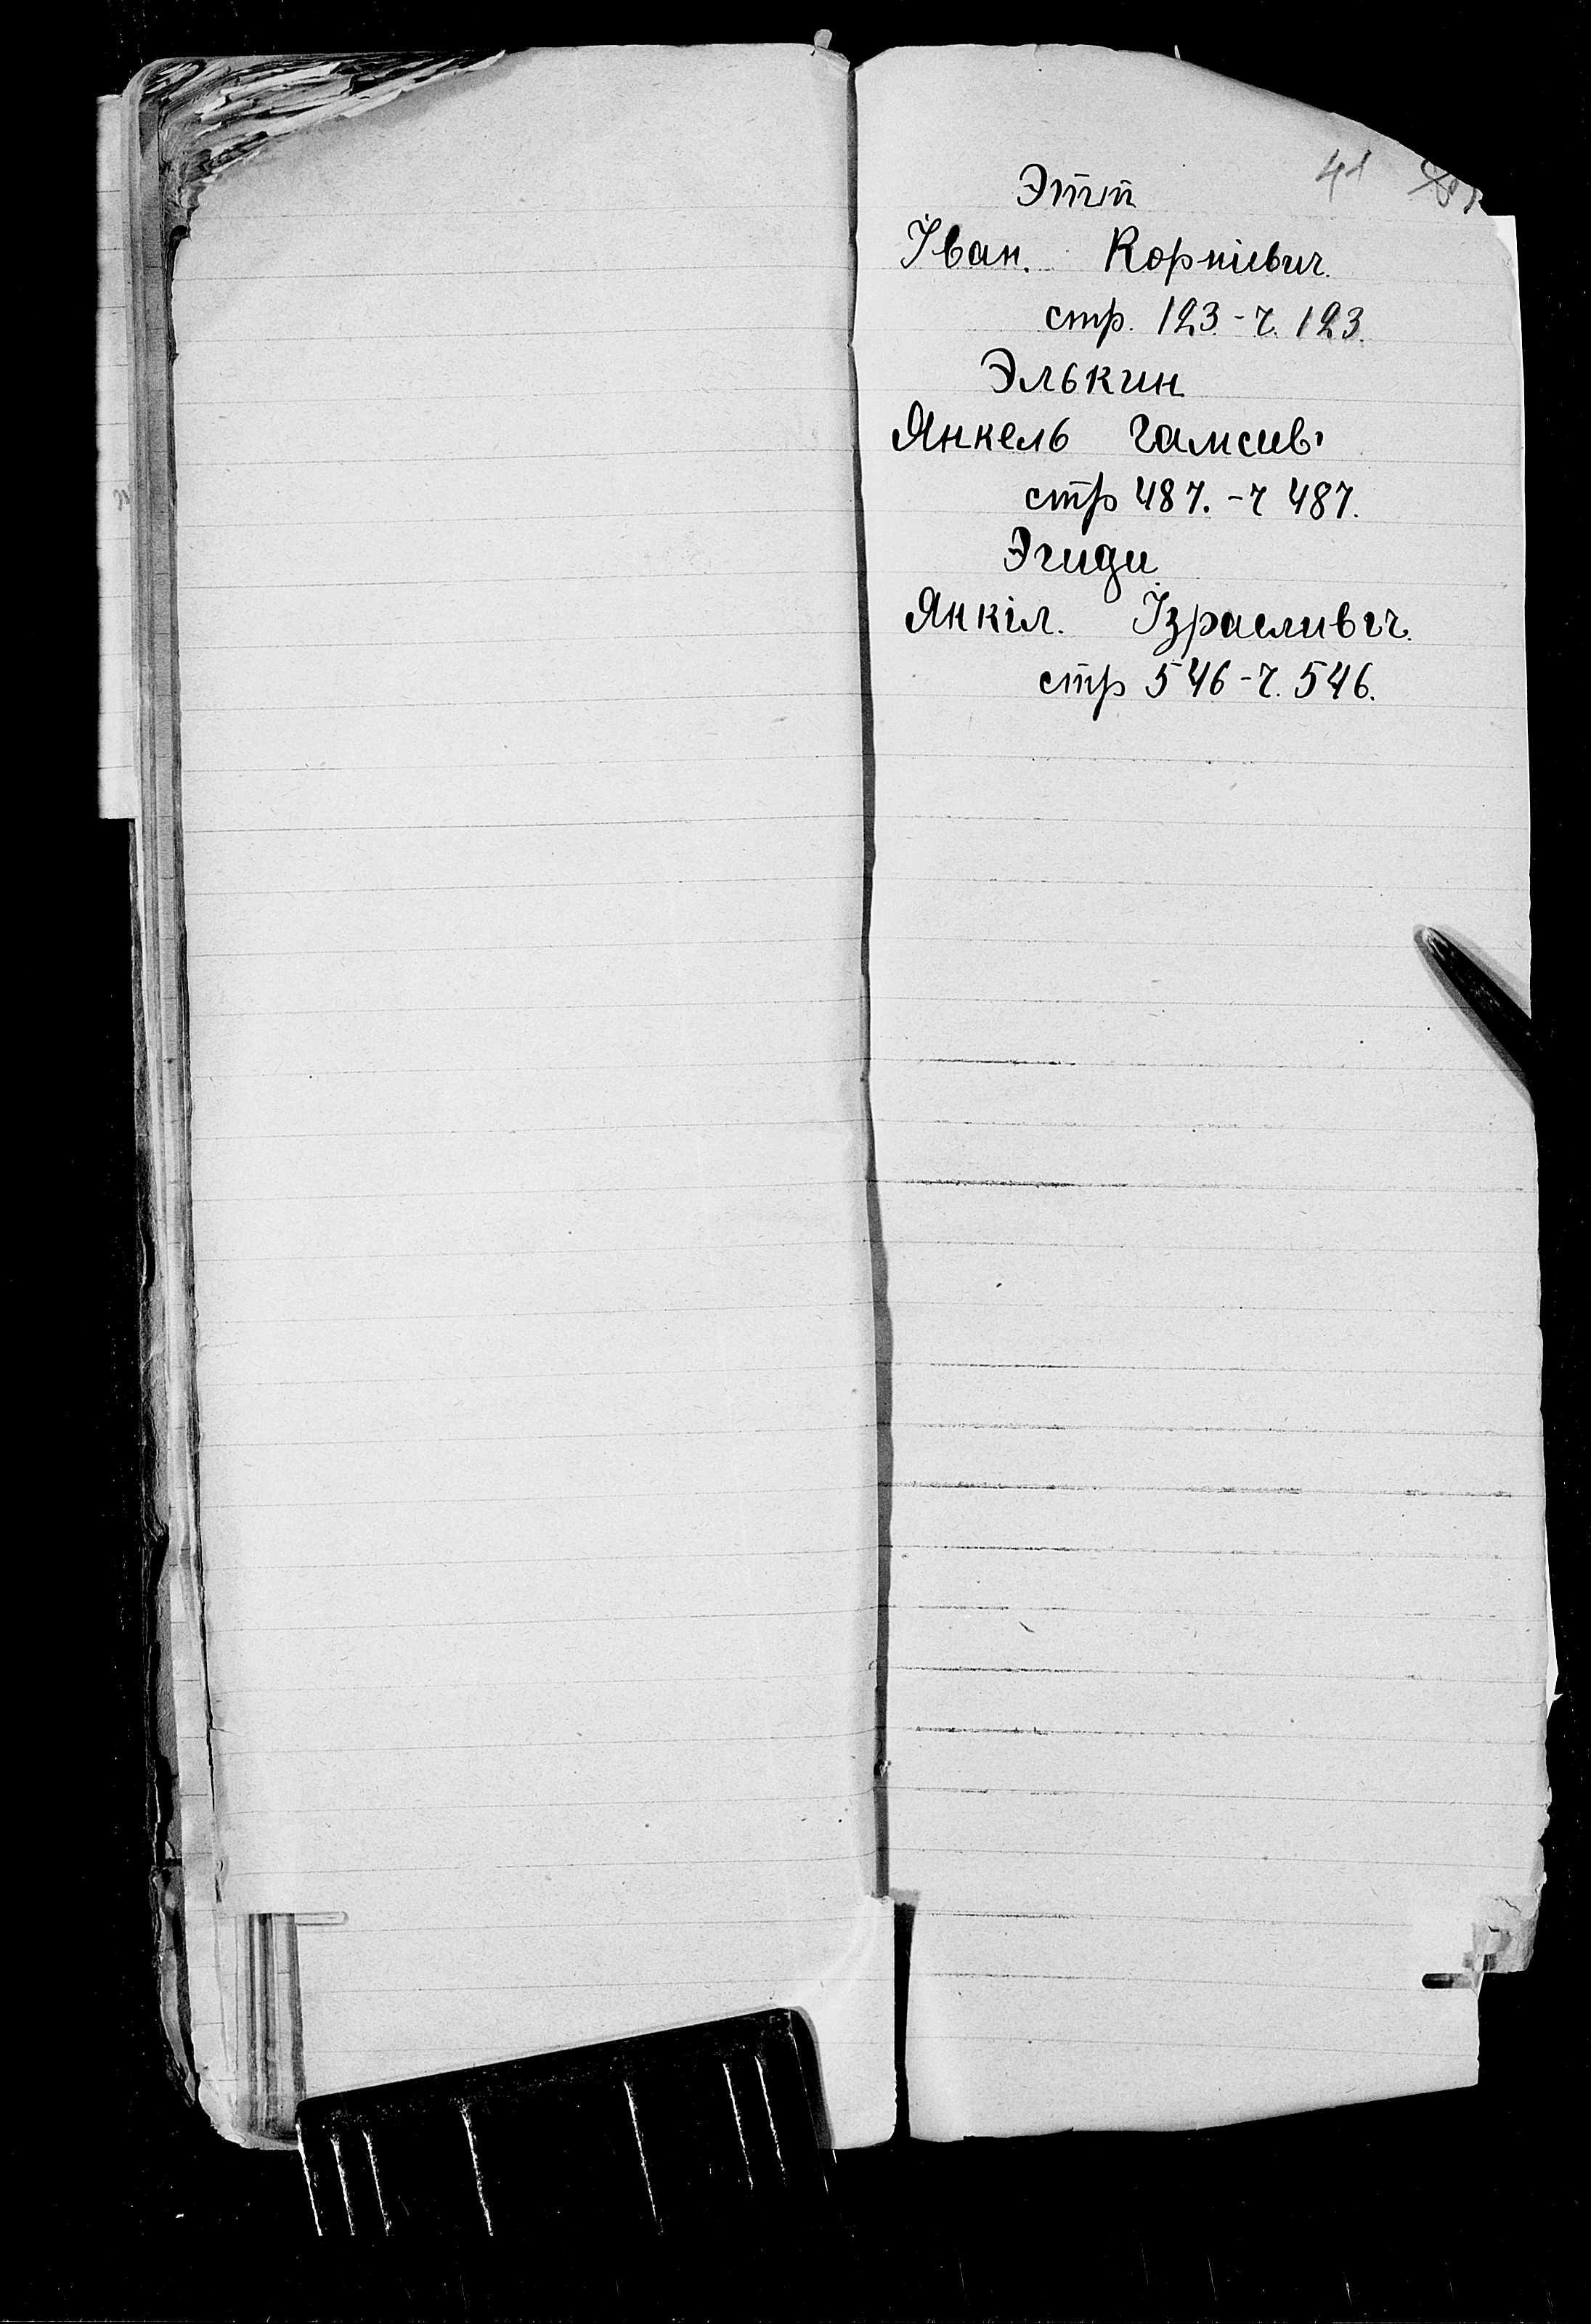 41
Этип
Їван. Корнієвич.
стр. 123 - ч. 123.
Элькин
Янкель Гамсив
стр 487. - ч 487.
Эгиди
Янкіл. Їзраеливіч.
стр 546 - ч. 546.